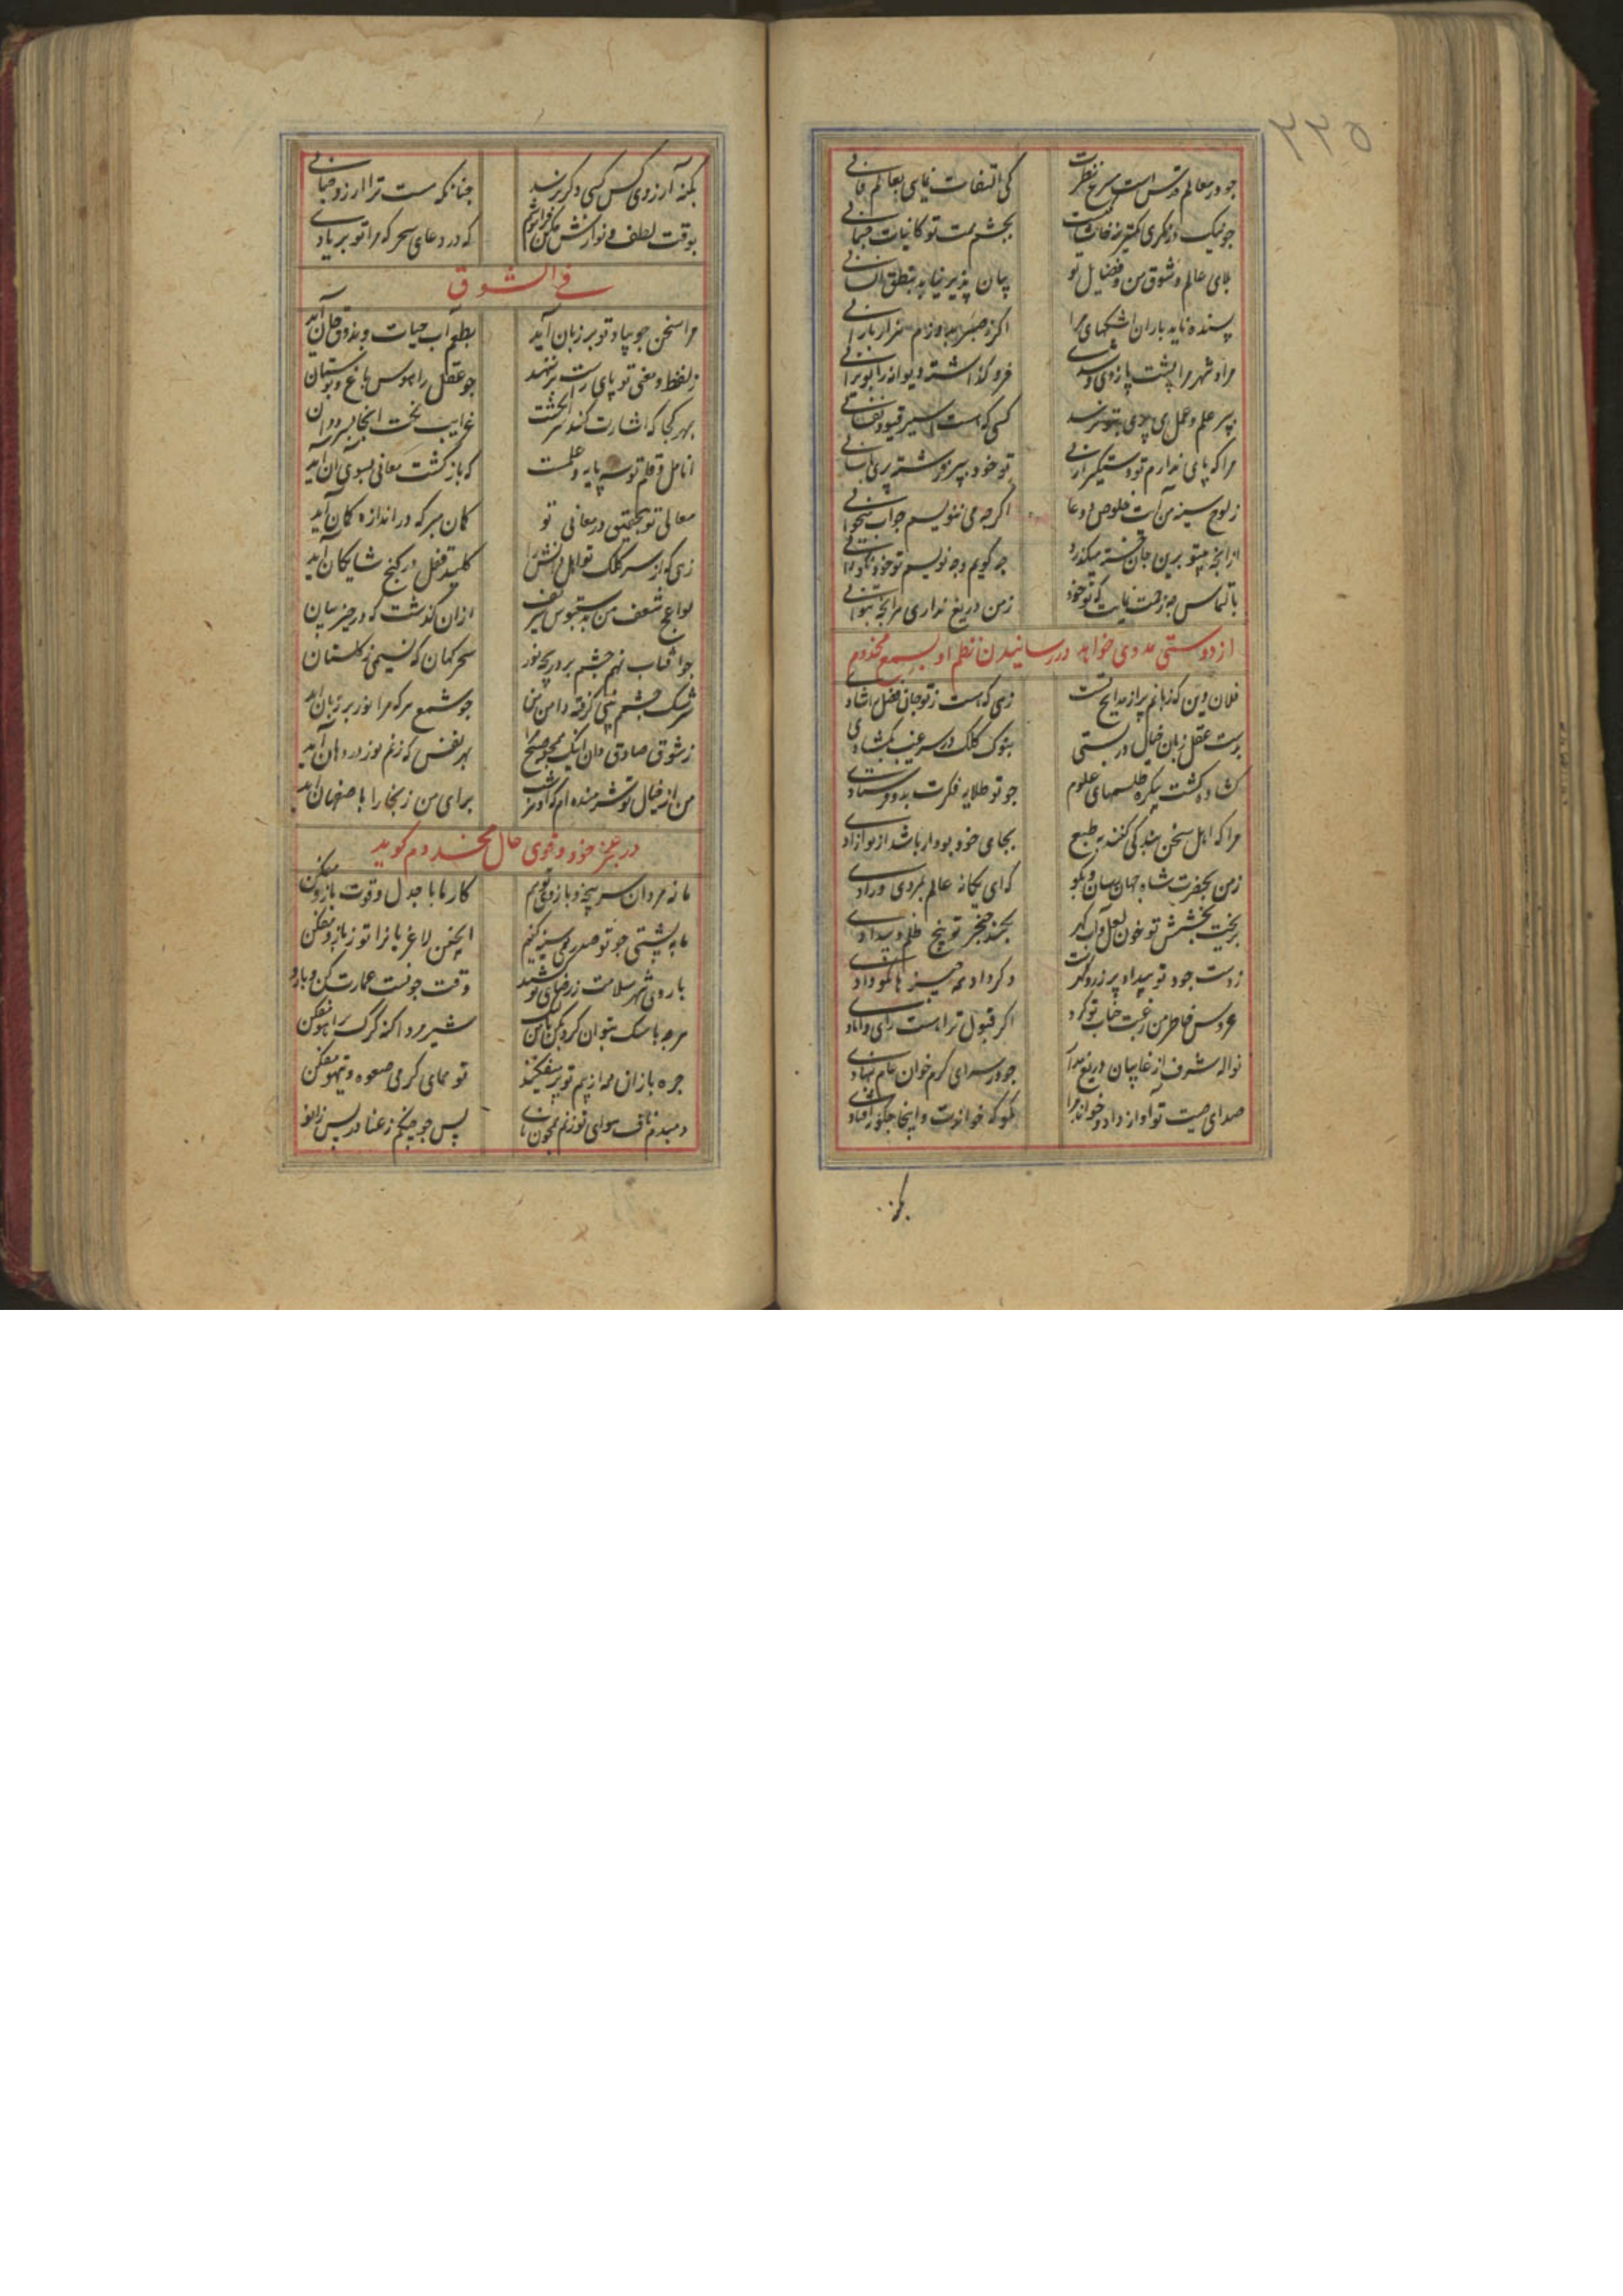 ۲۲۵
جو در معالم قدس است سرح نظرت کی التفات نمایی بعالم فانی
جو نیک درنکری کمترینه بچشم همت تو کانیات جسمانی
بلای عالم و شوق من و فضایل تو بیان پذیر نیاید بنطق انسانی
پسنده ناید باران اشکهای مرا اکر هزار بار
مراد شهر مرا پشت پا زدی و شدی فرو کذاشته دیوانه را بویرانی
بپر علم و عمل می پری بتو نرسد کسی که هست اسیر قیود نفسانی
مرا که پای ندارم تو دستکیر ارنی تو خود بپر فرشته پری باسانی
ز لوح سینه من آیت خلوص و دعا اکرجه می ننویسم جواب میخوانی
ازانجه بیتو برین جان خسته میکذرد جه کویم و جه نویسم تو خود نکو دانی
بالتماس جه زحمت نمایمت که تو خود ز من دریغ نداری هرانجه بتوانی
از دوستی مددی خواهد در رسانیدن نظم او بسمع مخدوم
فلان دین که زبانم پر از مدایح تست زهی که هست ز تو جان فضل را شادی
بدست عقل زبان خیال در بستی بنوک کلک در سر غیب بکشادی
کشاده کشت بیکره طلسمهای علوم جو تو طلایه فکرت بدو فرستادی
مرا که اهل سخن بندکی کنند به طبع بجای خود بود ار باشد از تو ازادی
ز من بحضرت شاه جهان رسان و بکو که ای یکانه عالم بمردی و رادی
بریخت بخشش تو خون لعل و آب کهر بکند خنجر تو بیخ ظلم و بیدادی
ز دست جود تو بیداد بر زر و کهرست و کر داد همه جیزها نکو دادی
عروس خاطر من رغبت جناب تو کرد اکر قبول ترا هست رای دامادی
نواله شرف از غایبان دریغ مدار جو در سرای کرم خوان عام بنهادی
صدای صیت تو آواز داد و خواند مرا نکو که خواندت و اینجا جکونه افتادی
بکنه
بکنه آرزوی کس کسی دکر نرسد جنانکه هست ترا ارزو جنانی
بوقت لطف و نوازش مکن فراموشم که در دعای سحر که مرا تو بر یادی
فی الشوق
مرا سخن جو بیاد تو بر زبان آید بطعم آب حیات و بذوق جان آید
ز لفظ و معنی تو پای راست بر ننهد جو عقل را هوس باغ و بوستان آید
بهر کجا که اشارت کند سر انکشت غرایب نکت انجا بسر دوان آید
انامل و قلم تو سه پایه و علمست که بازکشت معانی بسوی آن آید
معالی تو بتحقیق در معانی تو کمان مبر که در اندازه کمان آید
زهی که از سر کلک تو اهل دانش را کلید قفل در کنج شایکان آید
لواعج شعف من بدستبوس شریف ازان کذشت که در حیز بیان آید
جو آفتاب نهم جشم بر دریجه نور سحر کهان که نسیمی ز کلستان آید
سرشک جشم ببینی کرفته دامن من جو شمع هر که مرا نور بر زبان آید
ز شوق صادق دان اینک همجو صبح مرا بهر نفس که زنم نور در دهان آید
من از خیال تو شرمنده ام که او هر شب برای من ز بخارا باصفهان آید
در عجز خود و قوی حال مخدوم کوید
ما نه مردان سر پنجه و بازوی تویم کار ما با جدل و قوت بازو مفکن
ما به پشتی جو تو صدر قوی سینه کنیم اینجنین لاغریانرا تو ز پهلو مفکن
باروی شهر سلامت ز رضای تو شید وقت جونست عمارت کن و بارو
هرجه با سک بتوان کرد بکن باک من شیر مردا کنه کرک برآهو مفکن
جره بازان همه از بیم تو پر میفکنند تو همای کرمی صعوه و تیهو مفکن
دمبدم ناف هوای تو زنم همجون نای پس جو جنکم ز عنا در پس زانو